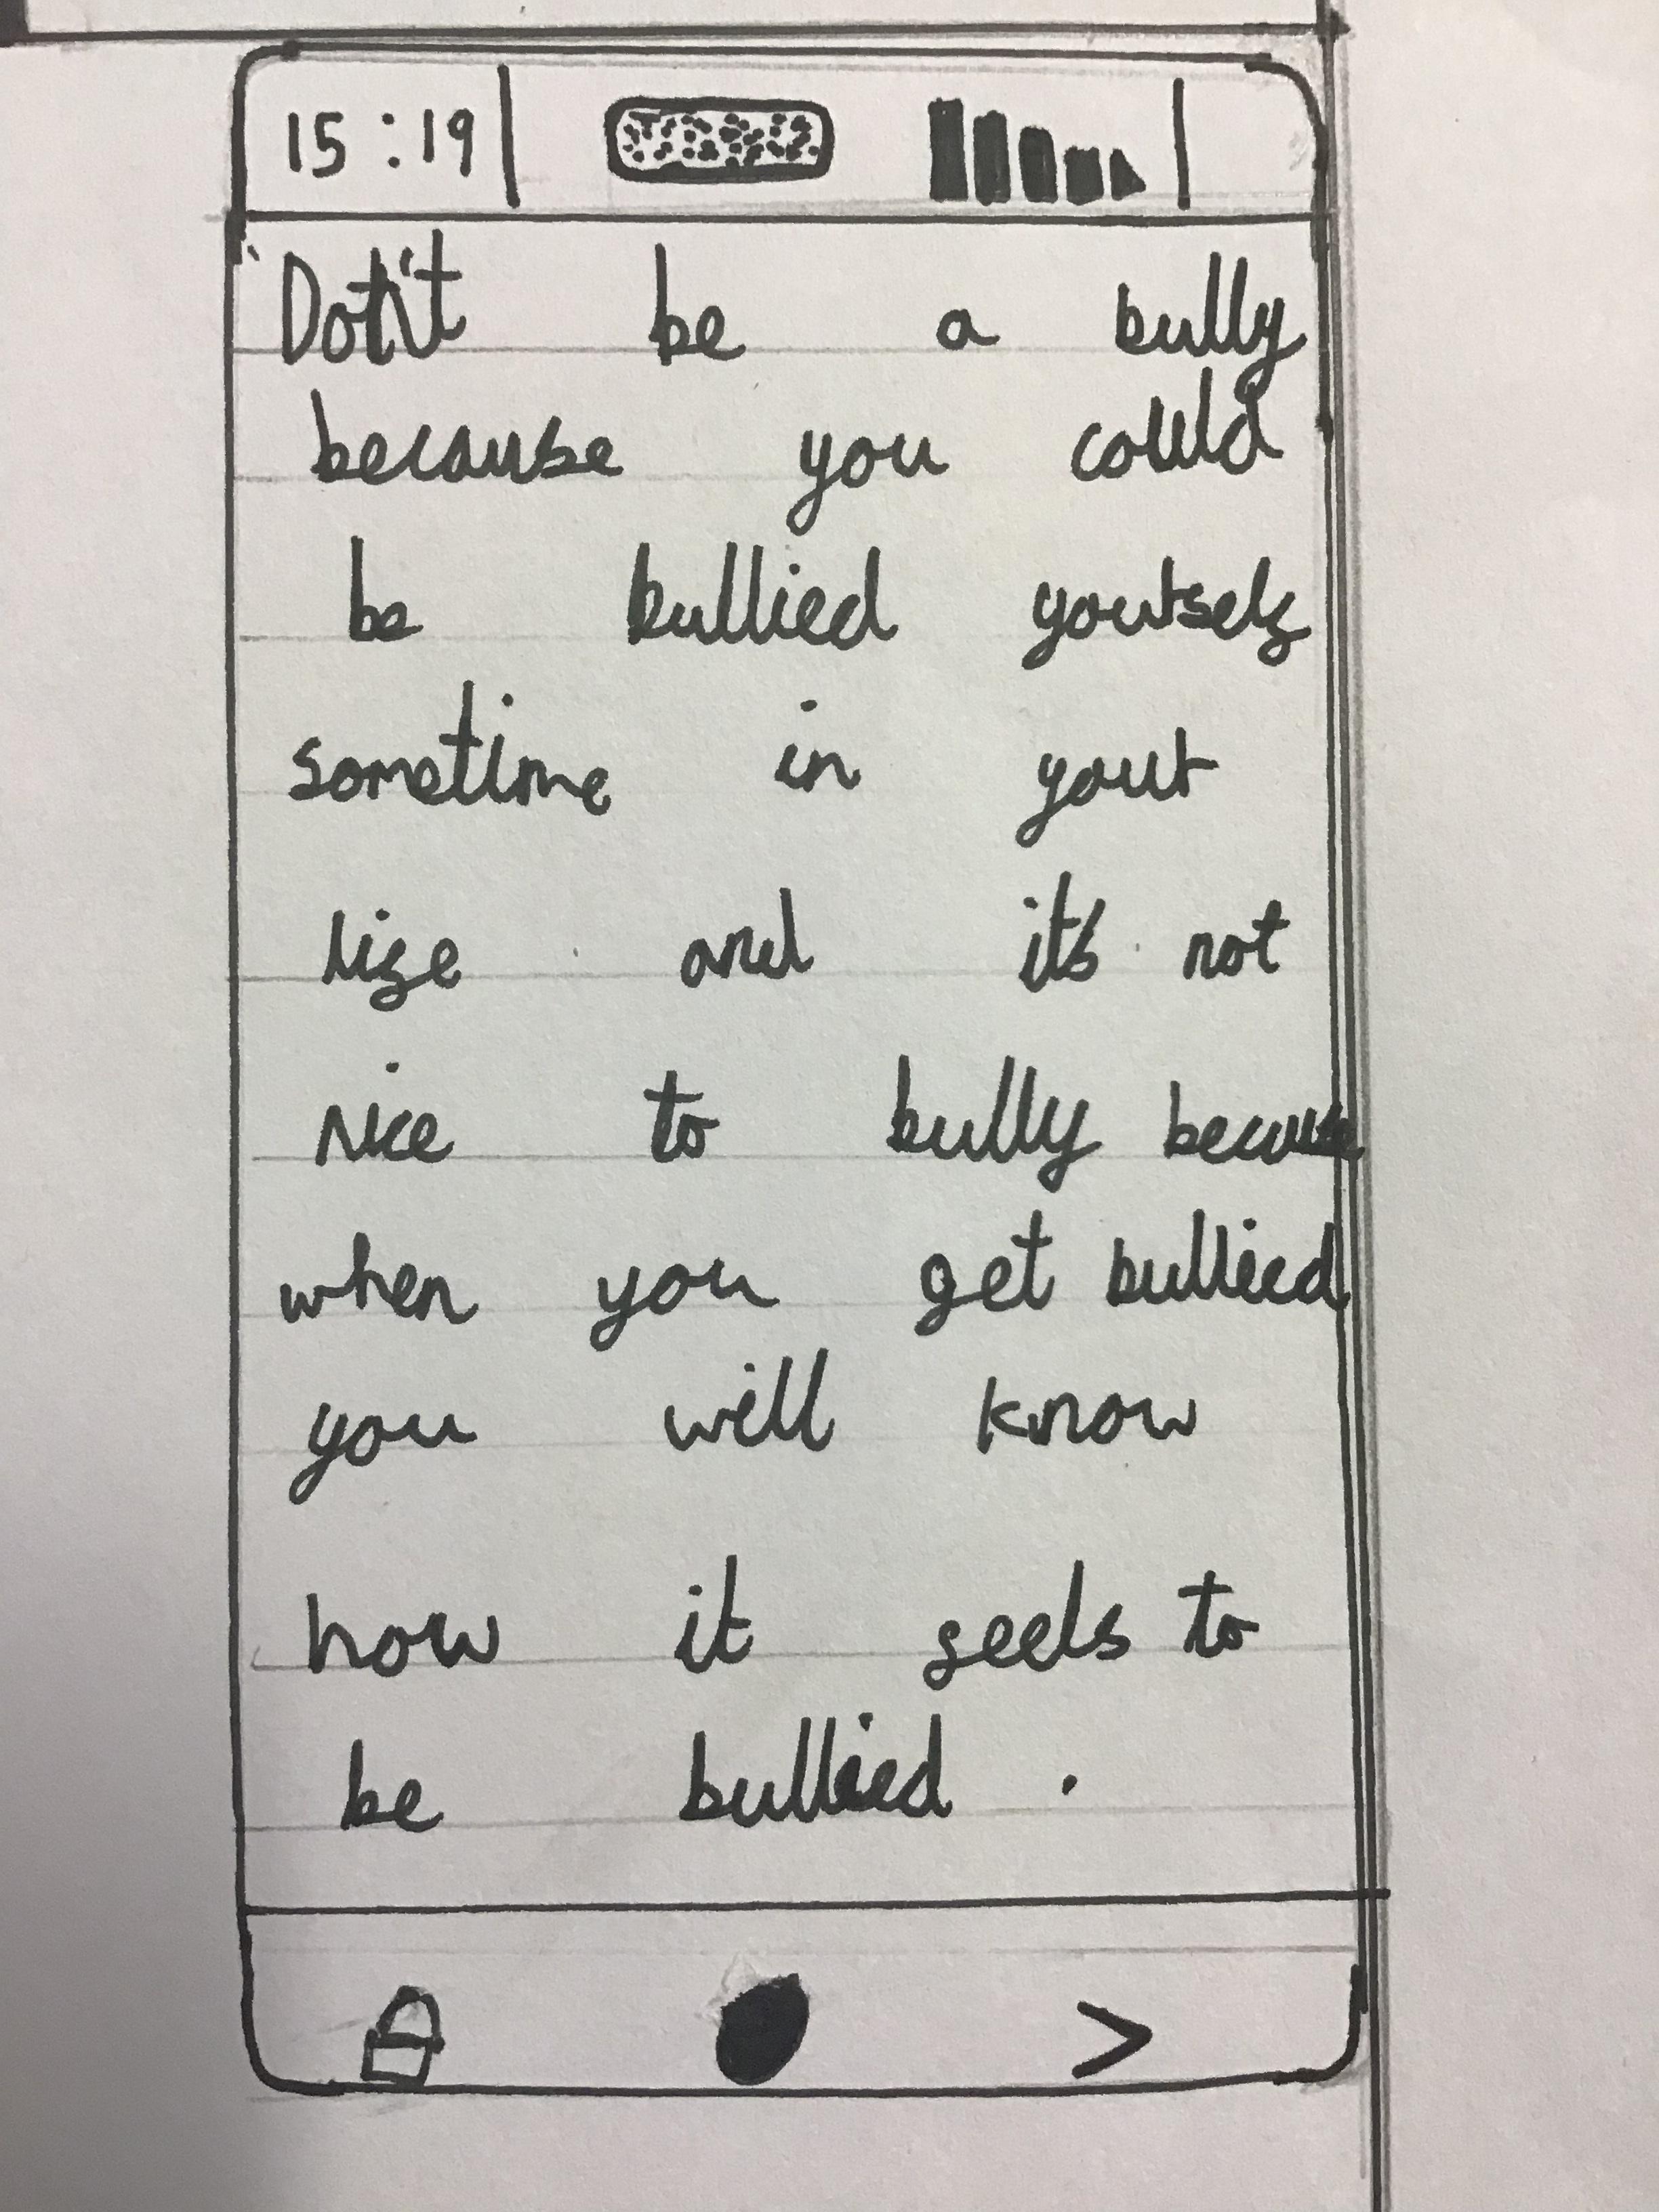 15:19
Don't be a bully
because you could
be bullied yourself
sometime in your
life and it's not
nice to bully because
when you get bullied
you will know
how it feels to
be bullied.
>